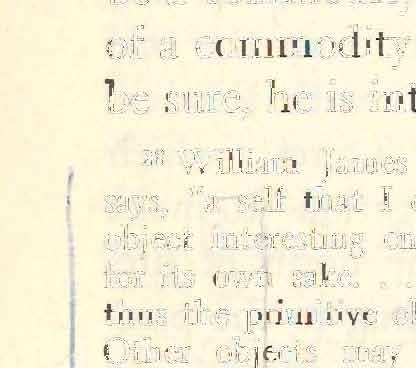 of a commodity
be sure, he is int
28 William James
says, "a self that I c
object interesting en
for its own sake. . .
thus the primitive ob
Other objects may